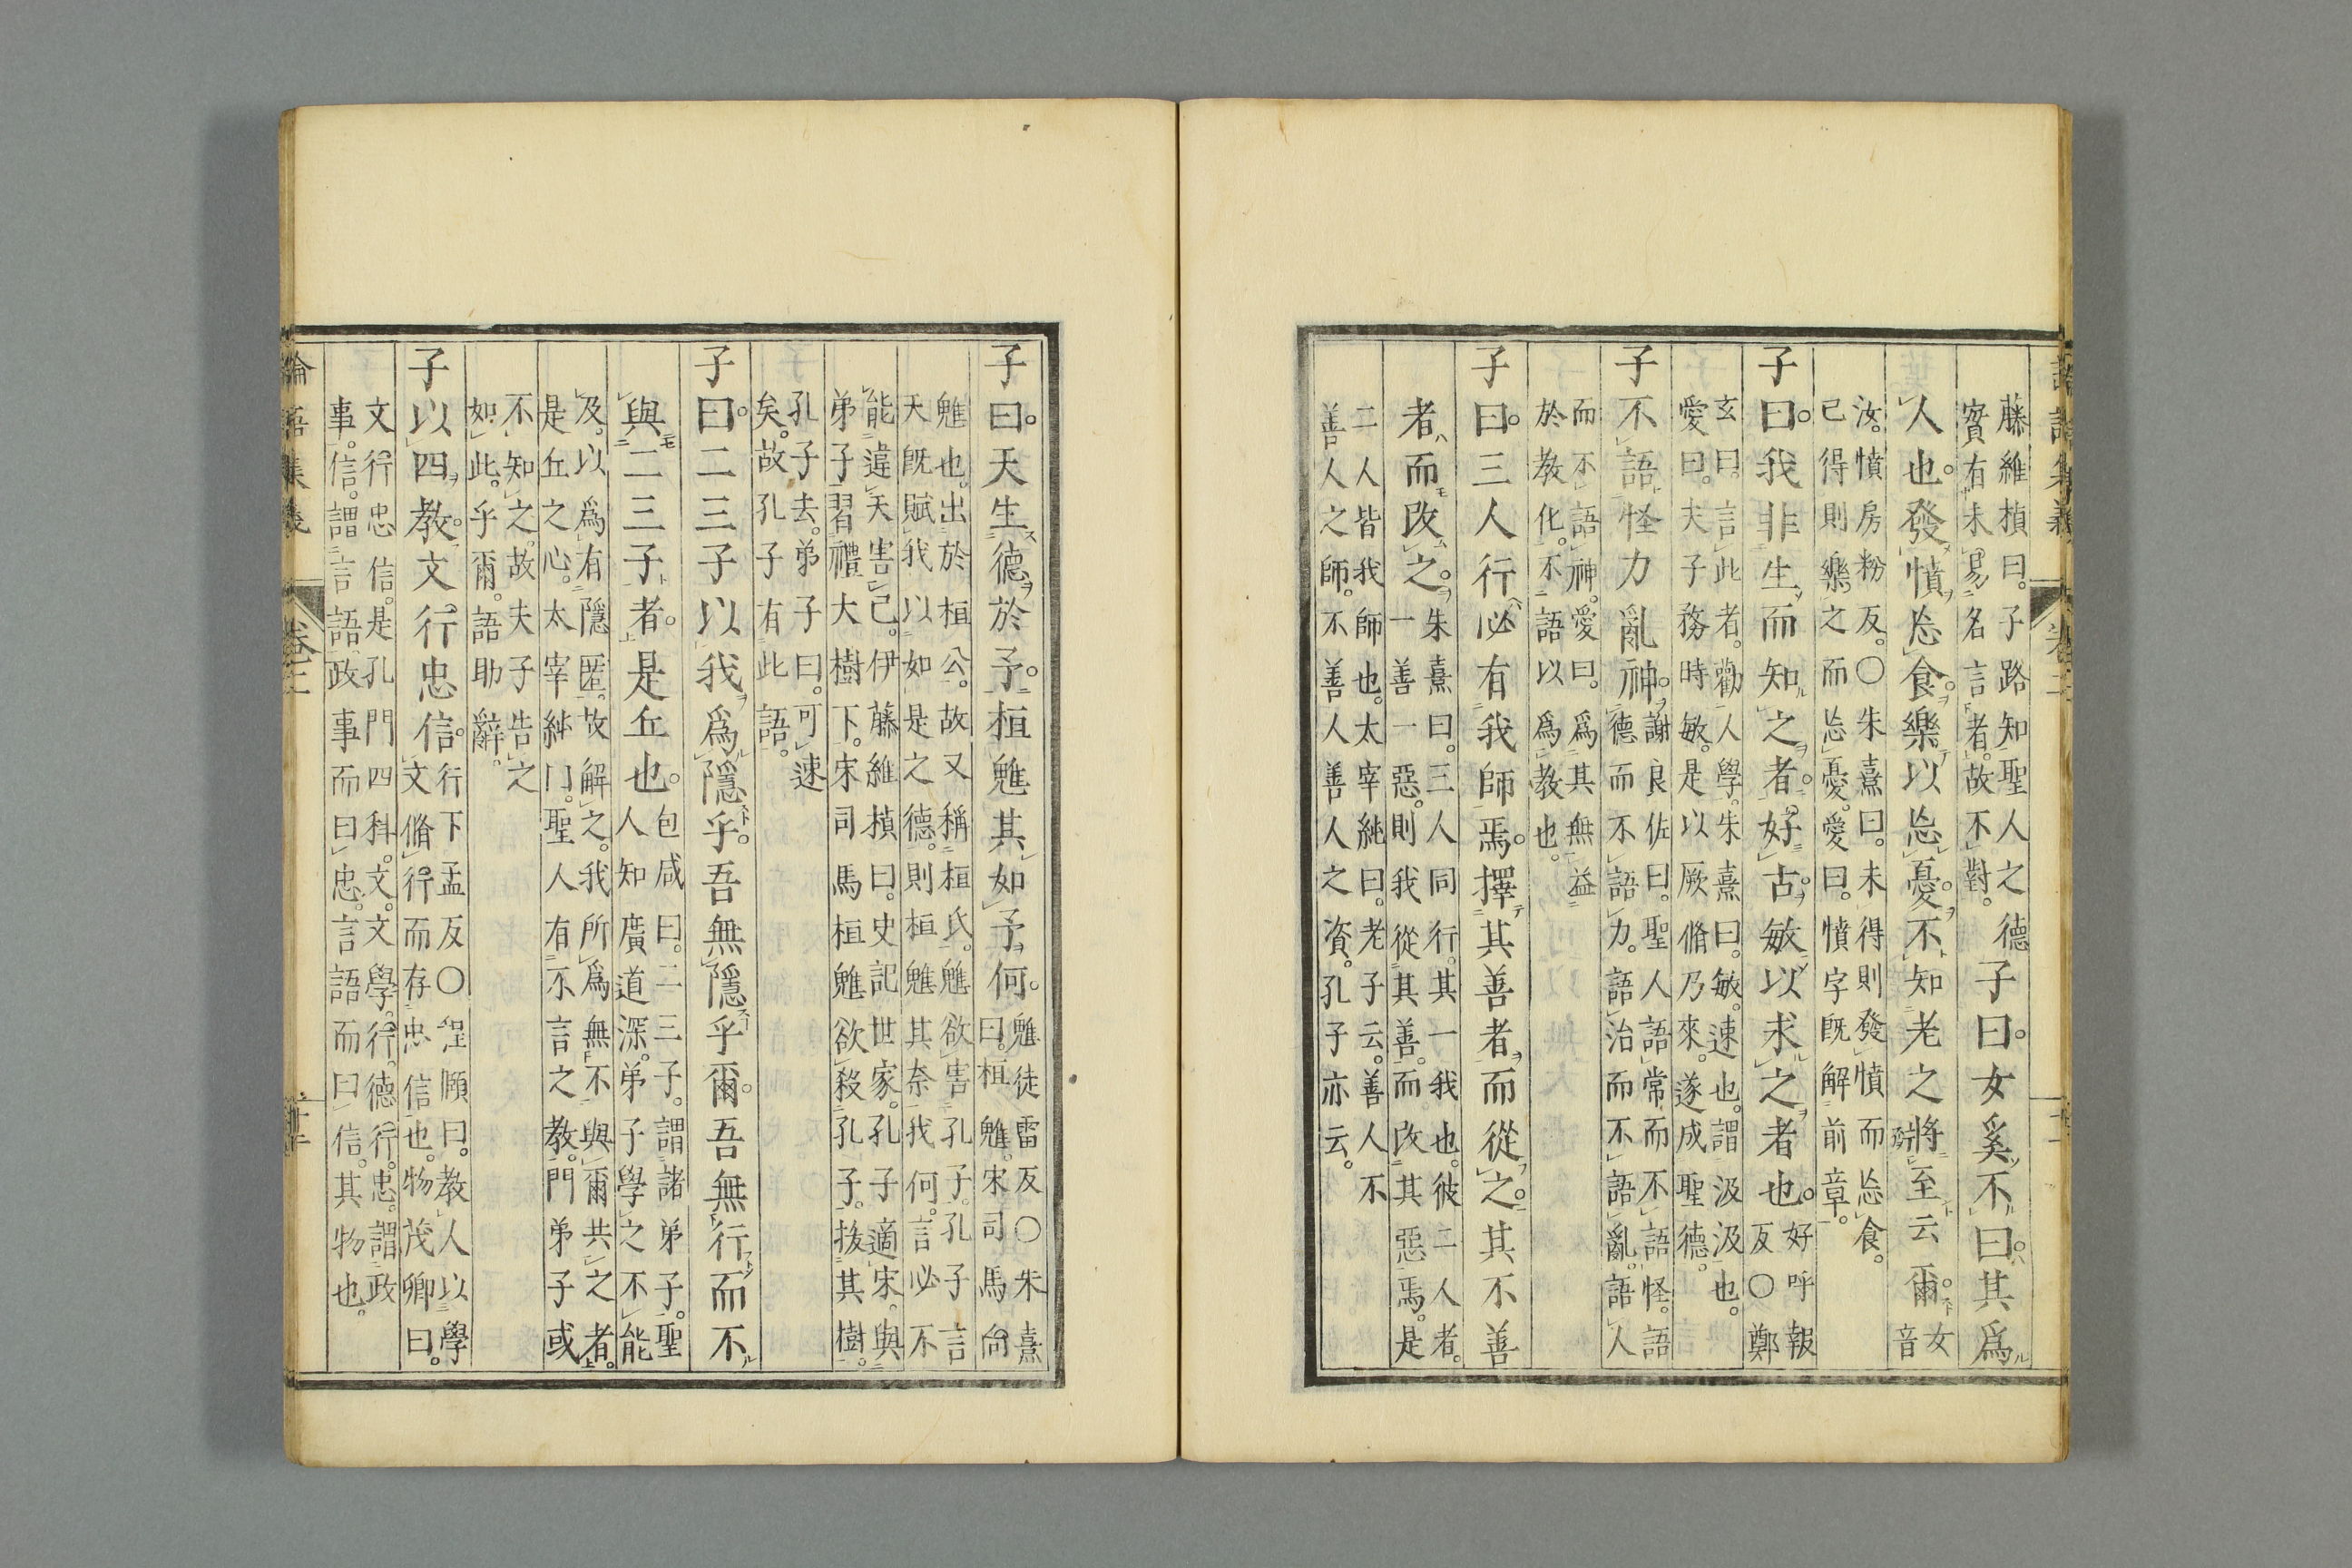 論語集義
卷二
藤維楨曰。子路知聖人之德
實有未易名言者。故不對。
子曰。女奚不曰。其爲
人也。發憤忘食。樂以忘憂。不知老之將至云爾。
女
音
汝。憤房粉反。○朱熹曰。未得則發憤而忘食。
已得則樂之而忘憂。愛曰。憤字旣解前章。
子曰。我非生而知之者。好古。敏以求之者也。
好呼報
反○鄭
玄曰。言此者。勸人學。朱熹曰。敏。速也。謂汲汲也。
愛曰。夫子務時敏。是以厥脩乃來。遂成聖德。
子不語怪力亂神。
謝良佐曰。聖人語常而不語怪。語
德而不語力。語治而不語亂。語人
而不語神。愛曰。爲其無益
於教化。不語以爲教也。
子曰。三人行必有我師焉。擇其善者而從之。其不善
者而改之。
朱熹曰。三人同行。其一我也。彼二人者。
一善一惡。則我從其善。而改其惡焉。是
二人皆我師也。太宰純曰。老子云。善人不
善人之師。不善人善人之資。孔子亦云。
子曰。天生德於予。桓魋其如予何。
魋徒雷反○朱熹
曰。桓魋。宋司馬向
魋也。出於桓公。故又稱桓氏。魋欲害孔子。孔子言
天旣賦我以如是之德。則桓魋其奈我何。言必不
能違天害己。伊藤維楨曰。史記世家。孔子適宋。與
弟子習禮大樹下。宋司馬桓魋欲殺孔子。拔其樹。
孔子去。弟子曰。可速
矣。故孔子有此語。
子曰。二三子以我爲隱乎。吾無隱乎爾。吾無行而不
與二三子者。是丘也。
包咸曰。二三子。謂諸弟子。聖
人知廣道深。弟子學之不能
及。以爲有隱匿。故解之。我所爲無不與爾共之者。
是丘之心。太宰純曰。聖人有不言之教。門弟子或
不知之。故夫子告之
如此。乎爾。語助辭。
子以四教。文行忠信。
行下孟反○程頤曰。教人以學
文脩行而存忠信也。物茂卿曰。
文行忠信。是孔門四科。文。文學。行。德行。忠。謂政
事。信。謂言語。政事而曰忠。言語而曰信。其物也。
論語集義
卷二